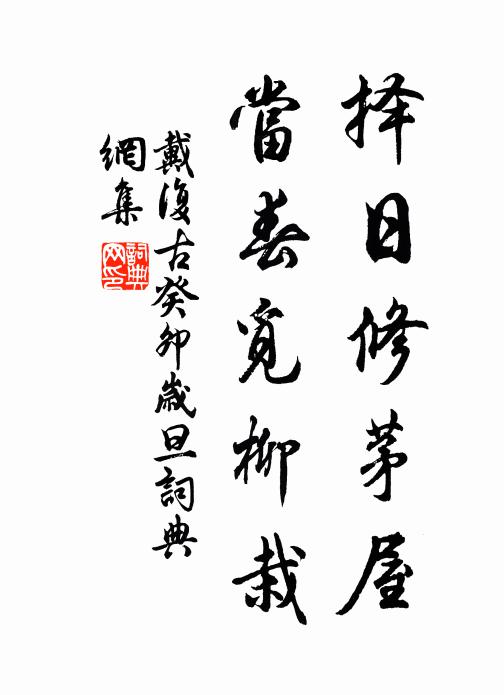 择日修茅屋
當春覓柳栽
戴復古癸卯歲旦詞典
網集
詞典网印